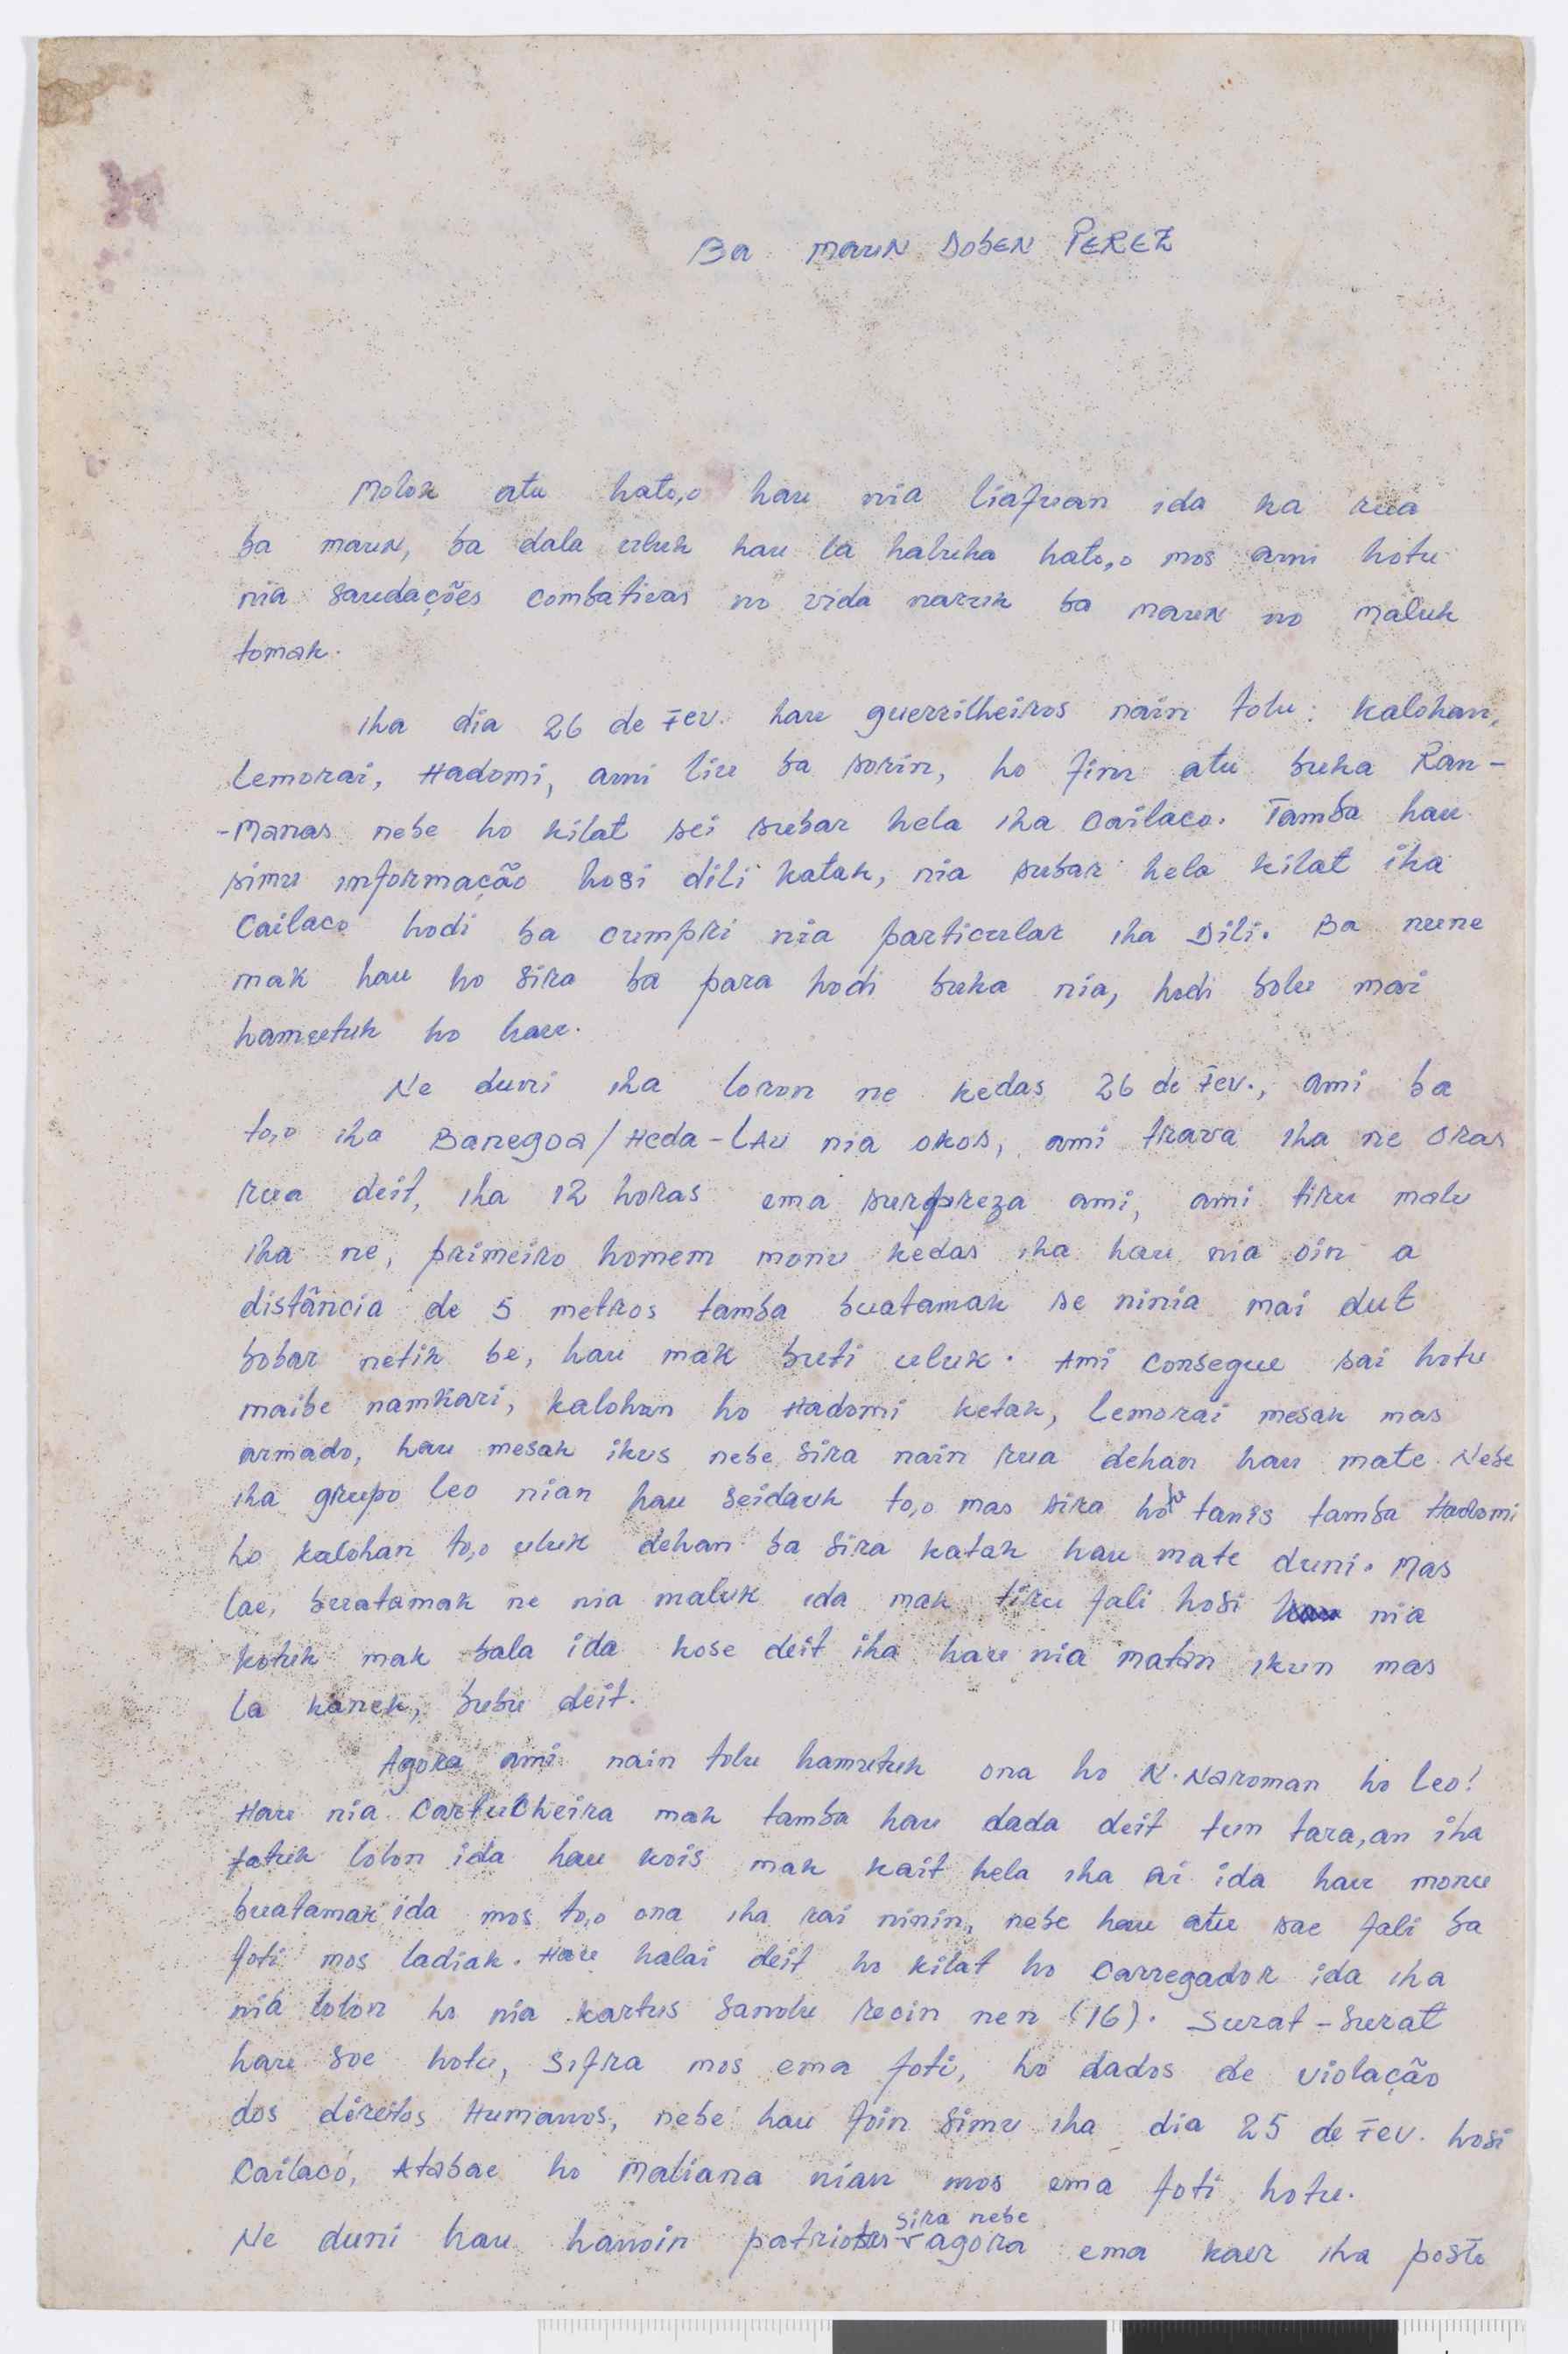 Ba maun DobEN PEREZ
Molok atu hato,o hau nia liafuan ida ka rua
ba maun, ba dala uluk hau la haluha hato,o mos ami hotu
nia saudações combativas no vida naruk ba maun no maluk
tomak.
iha dia 26 de Fev. hau guerrilheiros nain tolu: Kalohan,
Lemorai, Hadomi, ami liu ba sorin, ho fim atu buka Ran-
-Manas nebe ho kilat sei subar hela iha Cailaco. Tamba hau
simu informação hosi dili katak, nia subar hela kilat iha
Cailaco hodi ba cumpri nia particular iha Dili. Ba nune
mak hau ho sira ba para hodi buka nia, hodi bolu mai
hamutuk ho hau.
Ne duni iha loron ne kedas 26 de Fev., ami ba
to,o iha Banegoa/Heda-LAu nia okos, ami trava iha ne oras
rua deit, iha 12 horas ema surpreza ami, ami tiru malu
iha ne, primeiro homem monu kedas iha hau nia oin a
distância de 5 metros tamba buatamak se ninia mai dut
bobar netik be, hau mak buti uluk. Ami consegue sai hotu
maibe namkari, Kalohan ho Hadomi ketak, Lemorai mesak mas
armado, hau mesak ikus nebe sira nain rua dehan hau mate. Nebe
iha grupo leo nian hau seidauk to,o mas sira hotu tanis tamba Hadomi
ho Kalohan to,o uluk dehan ba sira katak hau mate duni. Mas
lae, buatamak ne nia maluk ida mak tiru fali hosi nia
kotuk mak bala ida kose deit iha hau nia matan ikun mas
la kanek, bubu deit.
Agora ami nain tolu hamutuk ona ho N. Naroman ho leo!
Hau nia CartuCheira mak tamba hau dada deit tun tara,an iha
fatuk lolon ida hau kois mak kait hela iha ai ida hau monu
buatamak ida mos to,o ona iha rai ninin, nebe hau atu sae fali ba
foti mos ladiak. Hau halai deit ho kilat ho carregador ida iha
nia lolon ho nia kartus sanolu resin nen (16). Surat-surat
hau soe hotu, sifra mos ema foti, ho dados de violação
dos direitos Humanos, nebe hau foin simu iha dia 25 de Fev. hosi
Cailaco, Atabae ho Maliana nian mos ema foti hotu.
Ne duni hau hanoin patriotas sira nebe agora ema kaer iha posto